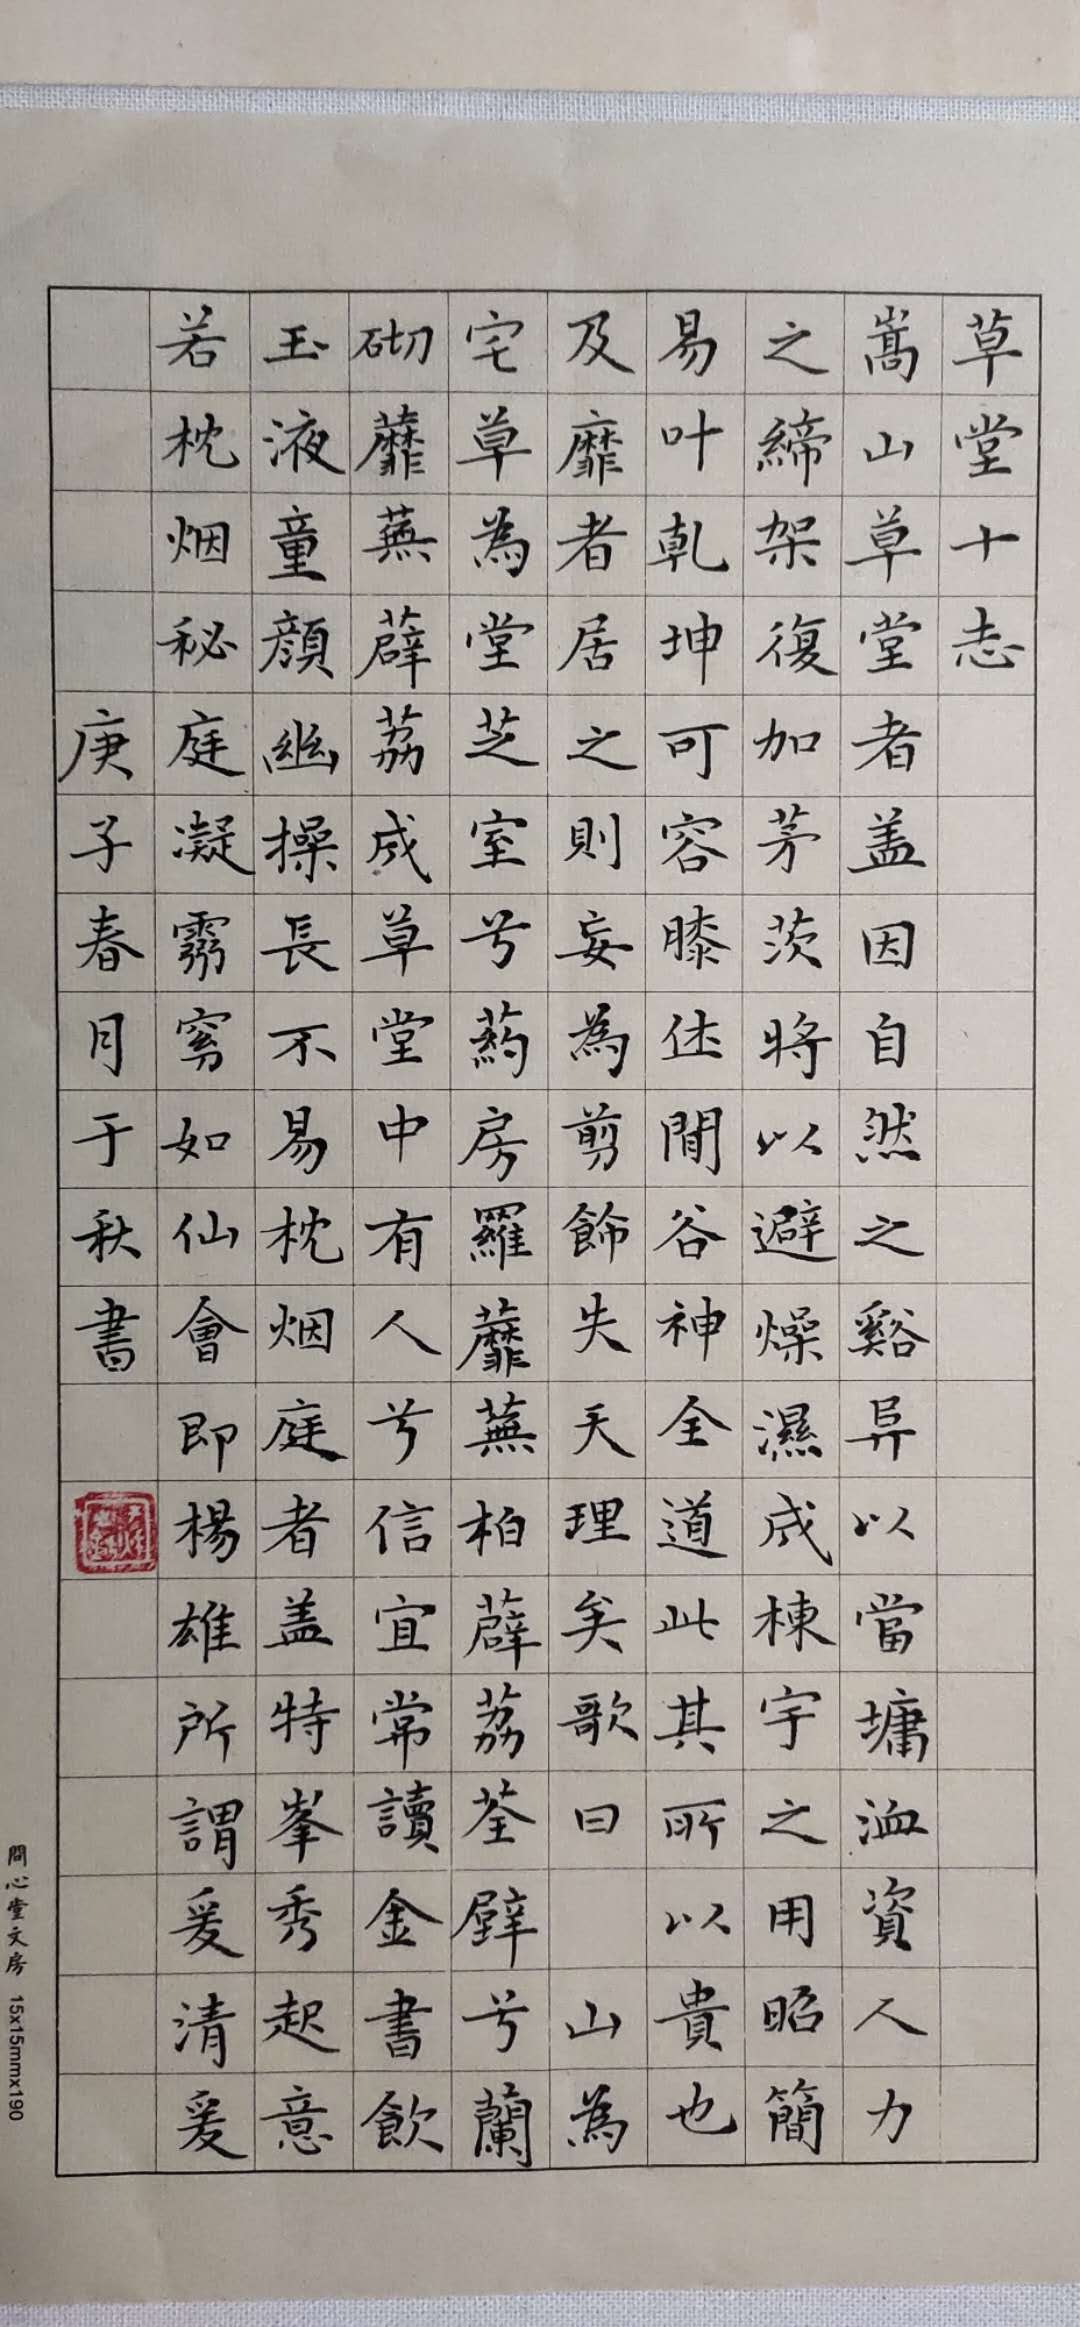 草堂十志
嵩山草堂者盖因自然之谿异以當墉洫資人力
之締架復加茅茨將以避燥濕成棟宇之用昭簡
易叶乾坤可容膝休閒谷神全道此其所以貴也
及靡者居之則妄為剪飾失天理矣歌曰 山為
宅草為堂芝室兮葯房羅蘼蕪柏薜荔荃壁兮蘭
砌蘼蕪薜荔成草堂中有人兮信宜常讀金書飲
玉液童顏幽操長不易枕烟庭者盖特峯秀起意
若枕烟秘庭凝窅如仙會即楊雄所謂爰清爰
庚子春月于秋書
問心堂文房 15x15mmx190